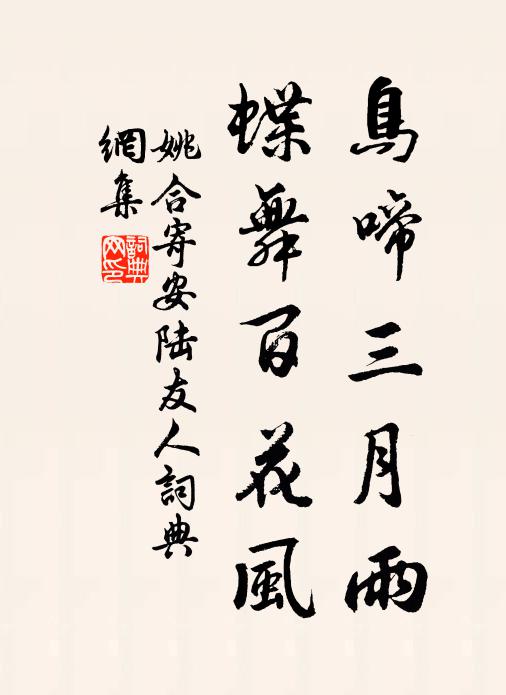 鳥啼三月雨
蝶舞百花風
姚合寄安陆友人詞典
網集
詞典
网印